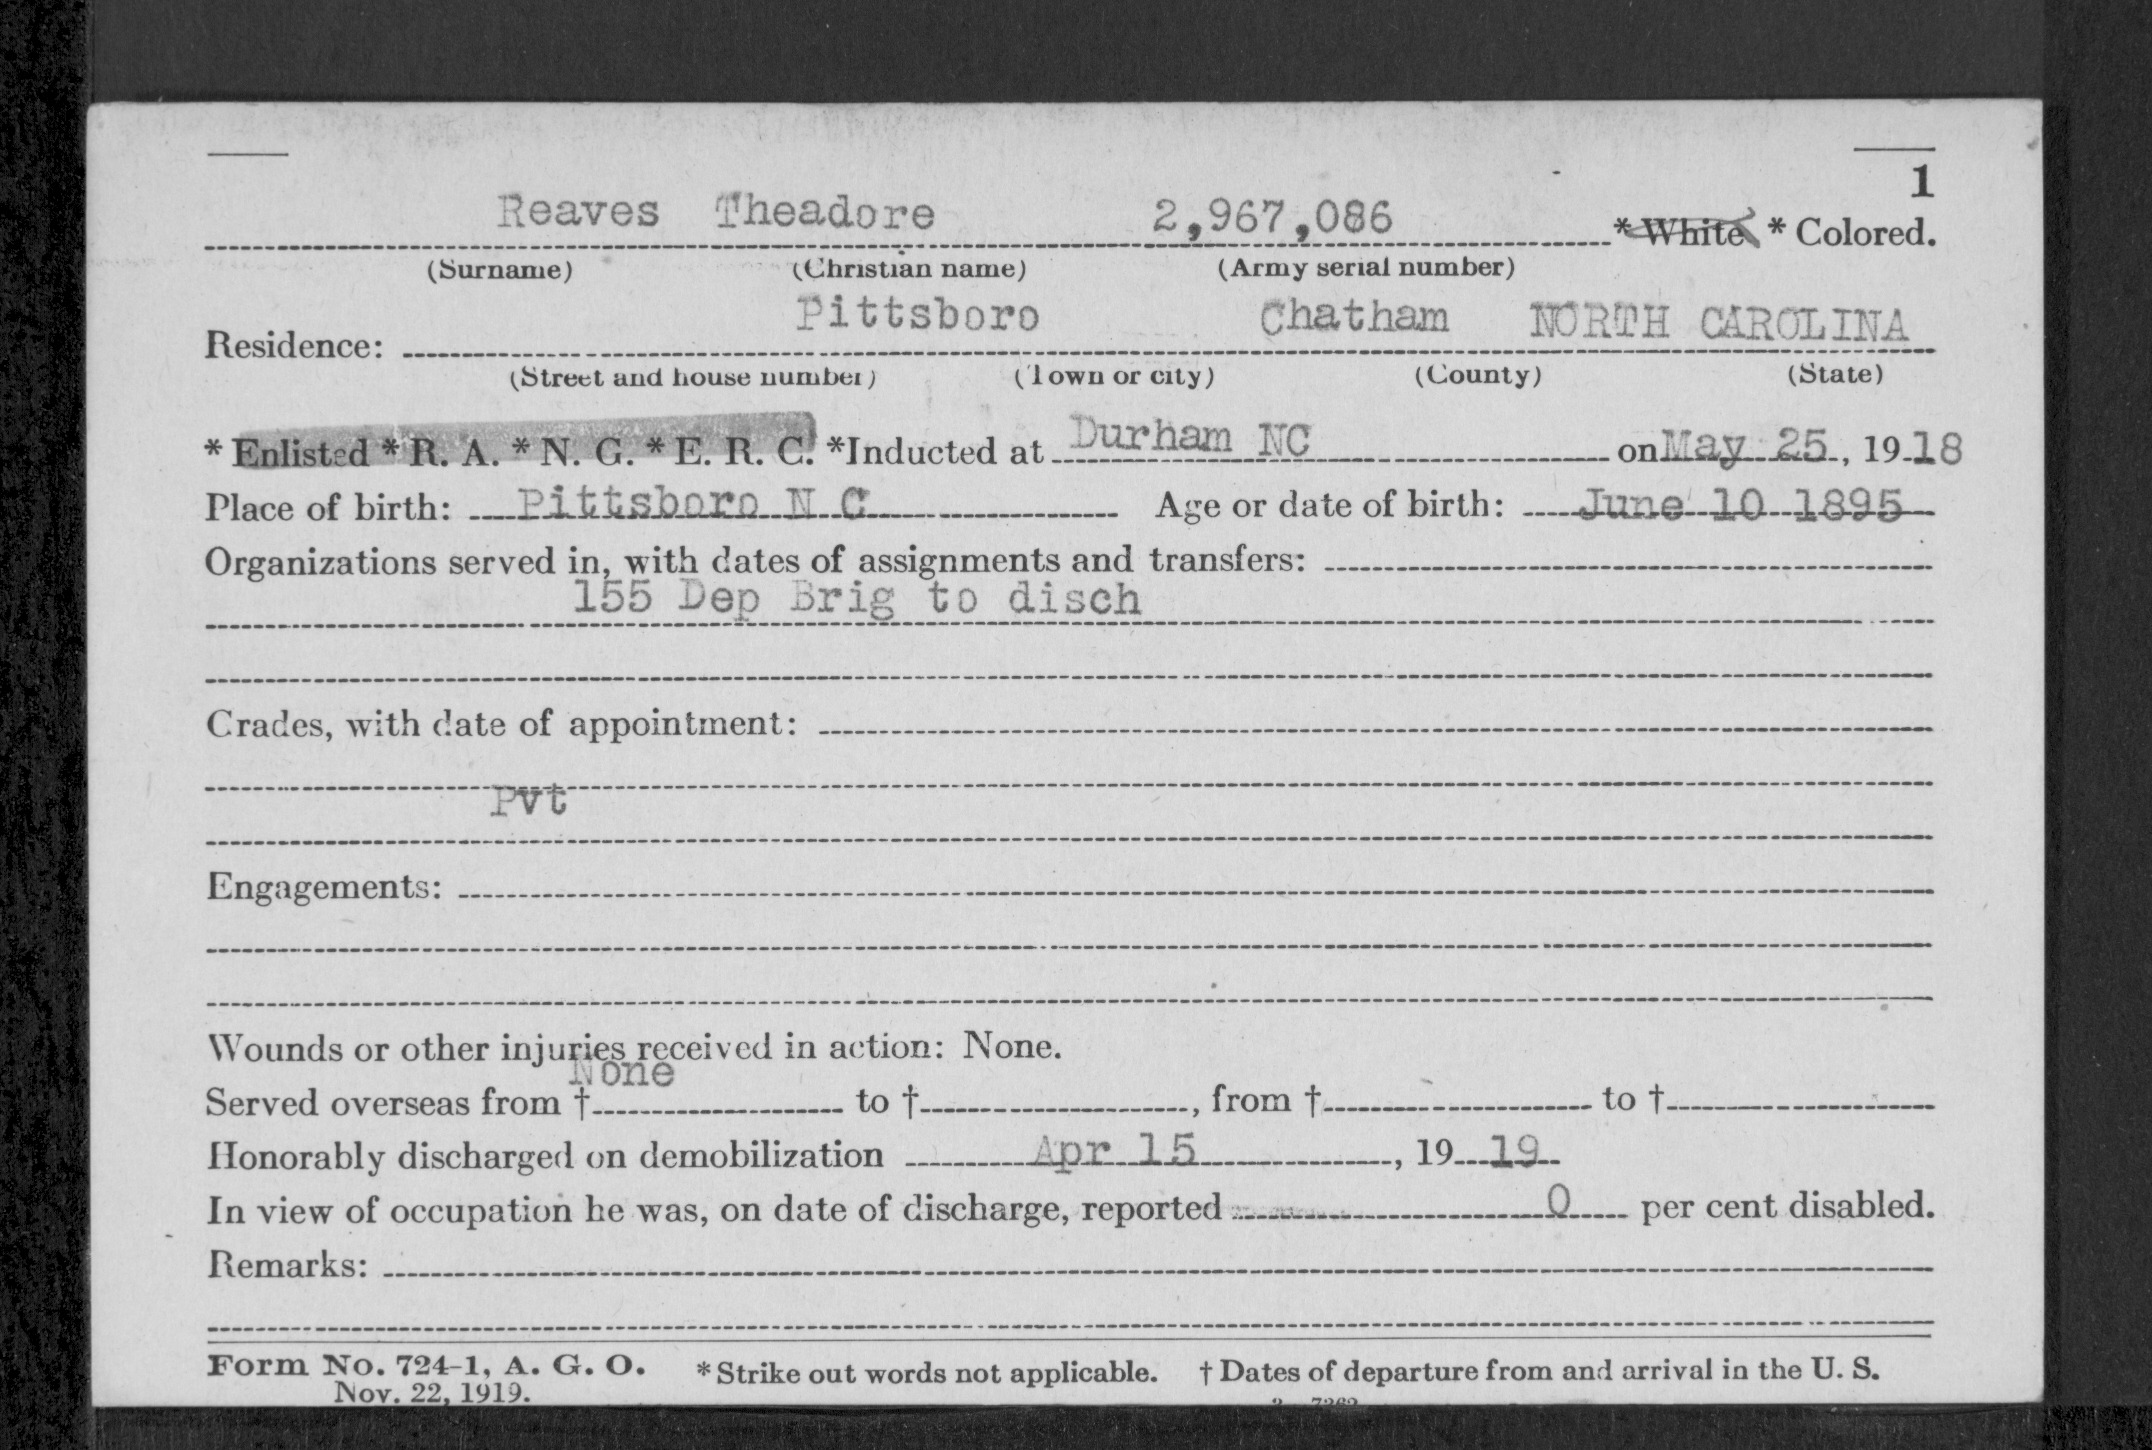 1
Reaves Theadore 2,967,086 * White * Colored.
(Surname) (Christian name) (Army serial number)
Pittsboro Chatham NORTH CAROLINA
Residence:
(Street and house number) (Town or city) (County) (State)
* Enlisted * R. A. * N. G. * E. R. C. *Inducted at Durham NC on May 25, 1918
Place of birth: Pittsboro N C Age or date of birth: June 10 1895
Organizations served in, with dates of assignments and transfers:
155 Dep Brig to disch
Grades, with date of appointment:
Pvt
Engagements:
Wounds or other injuries received in action: None.
None
Served overseas from † to †, from † to †
Honorably discharged on demobilization Apr 15, 19 19
In view of occupation he was, on date of discharge, reported 0 per cent disabled.
Remarks:
Form No. 724-1, A. G. O. * Strike out words not applicable. † Dates of departure from and arrival in the U. S.
Nov. 22, 1919.